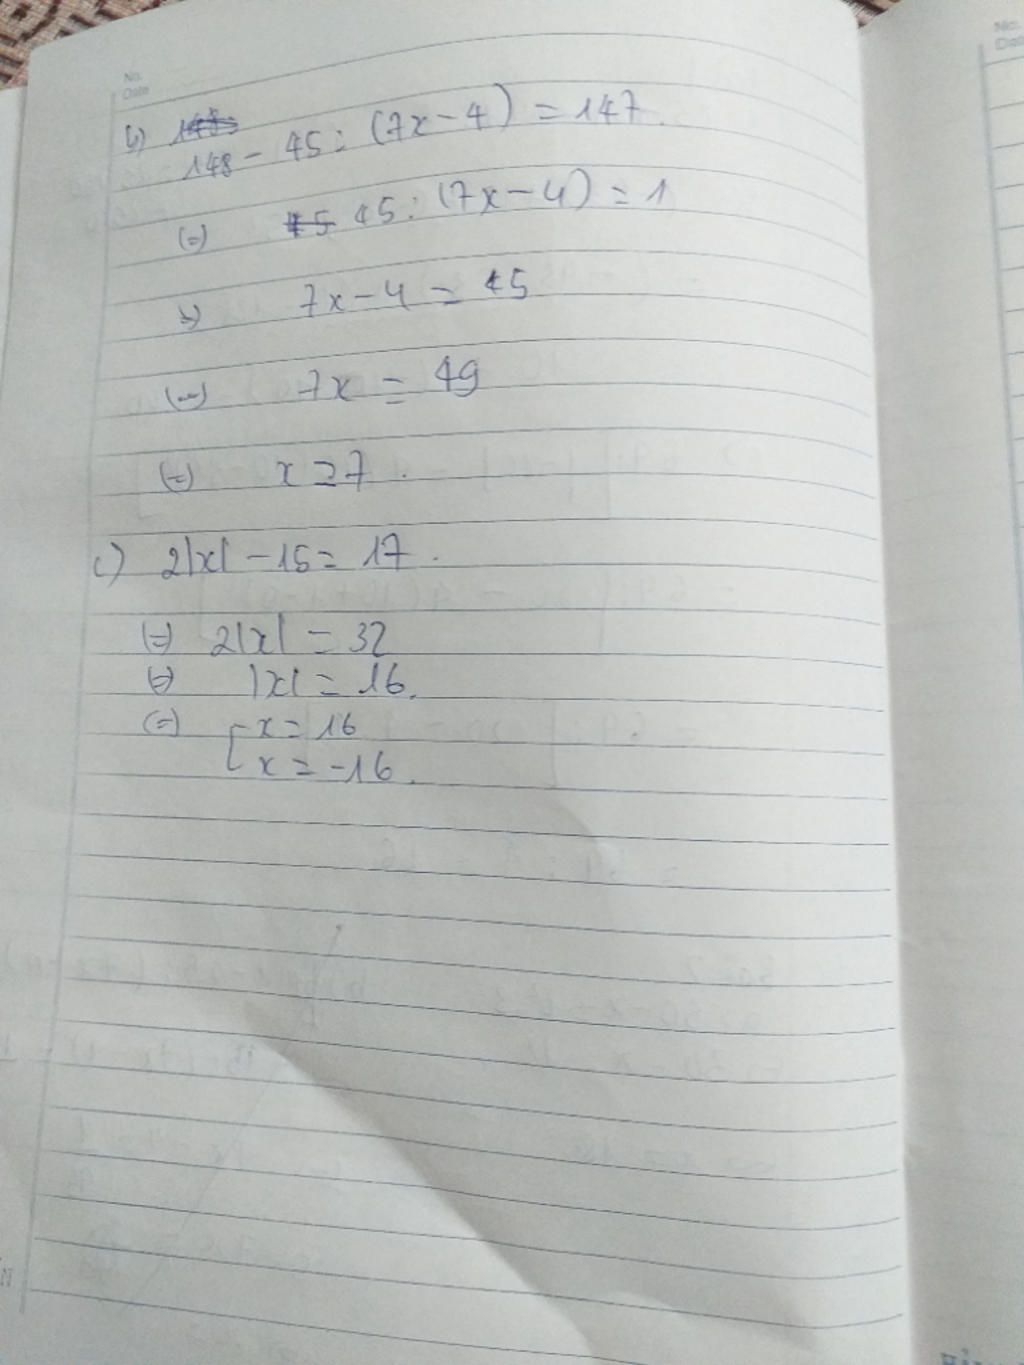 No.
Date
b) 148 - 45 : (7x - 4) = 147.
(=) 45 : (7x - 4) = 1
(=) 7x - 4 = 45
(=) 7x = 49
(=) x = 7.
c) 2|x| - 15 = 17.
(=) 2|x| = 32
(=) |x| = 16.
(=) [ x = 16
x = -16.